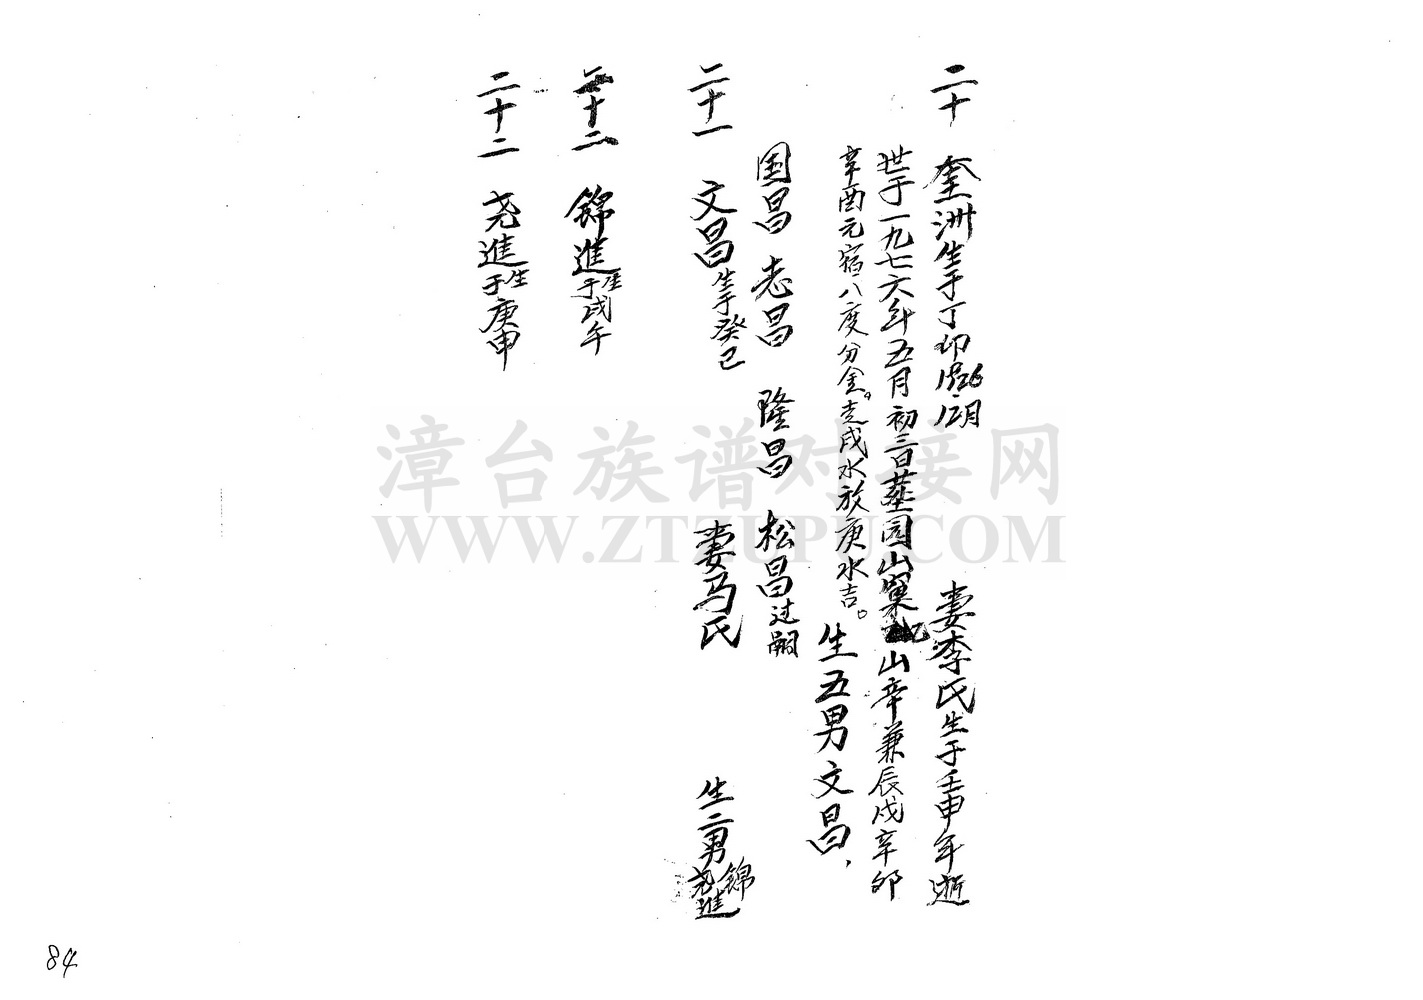 二十 奎洲生于丁卯1926.12月 妻李氏生于壬申年逝
世于一九七六年五月初三日葬园山巢山辛兼辰戌辛卯
辛酉元宿八度分金。走戌水放庚水吉。生五男文昌,
国昌 志昌 隆昌 松昌过嗣
二十一 文昌生于癸己 妻马氏 生二男錦進尧進
二十二 錦進生于戌午
二十二 尧進生于庚申
漳台族谱对接网
WWW.ZTZUPU.COM
84